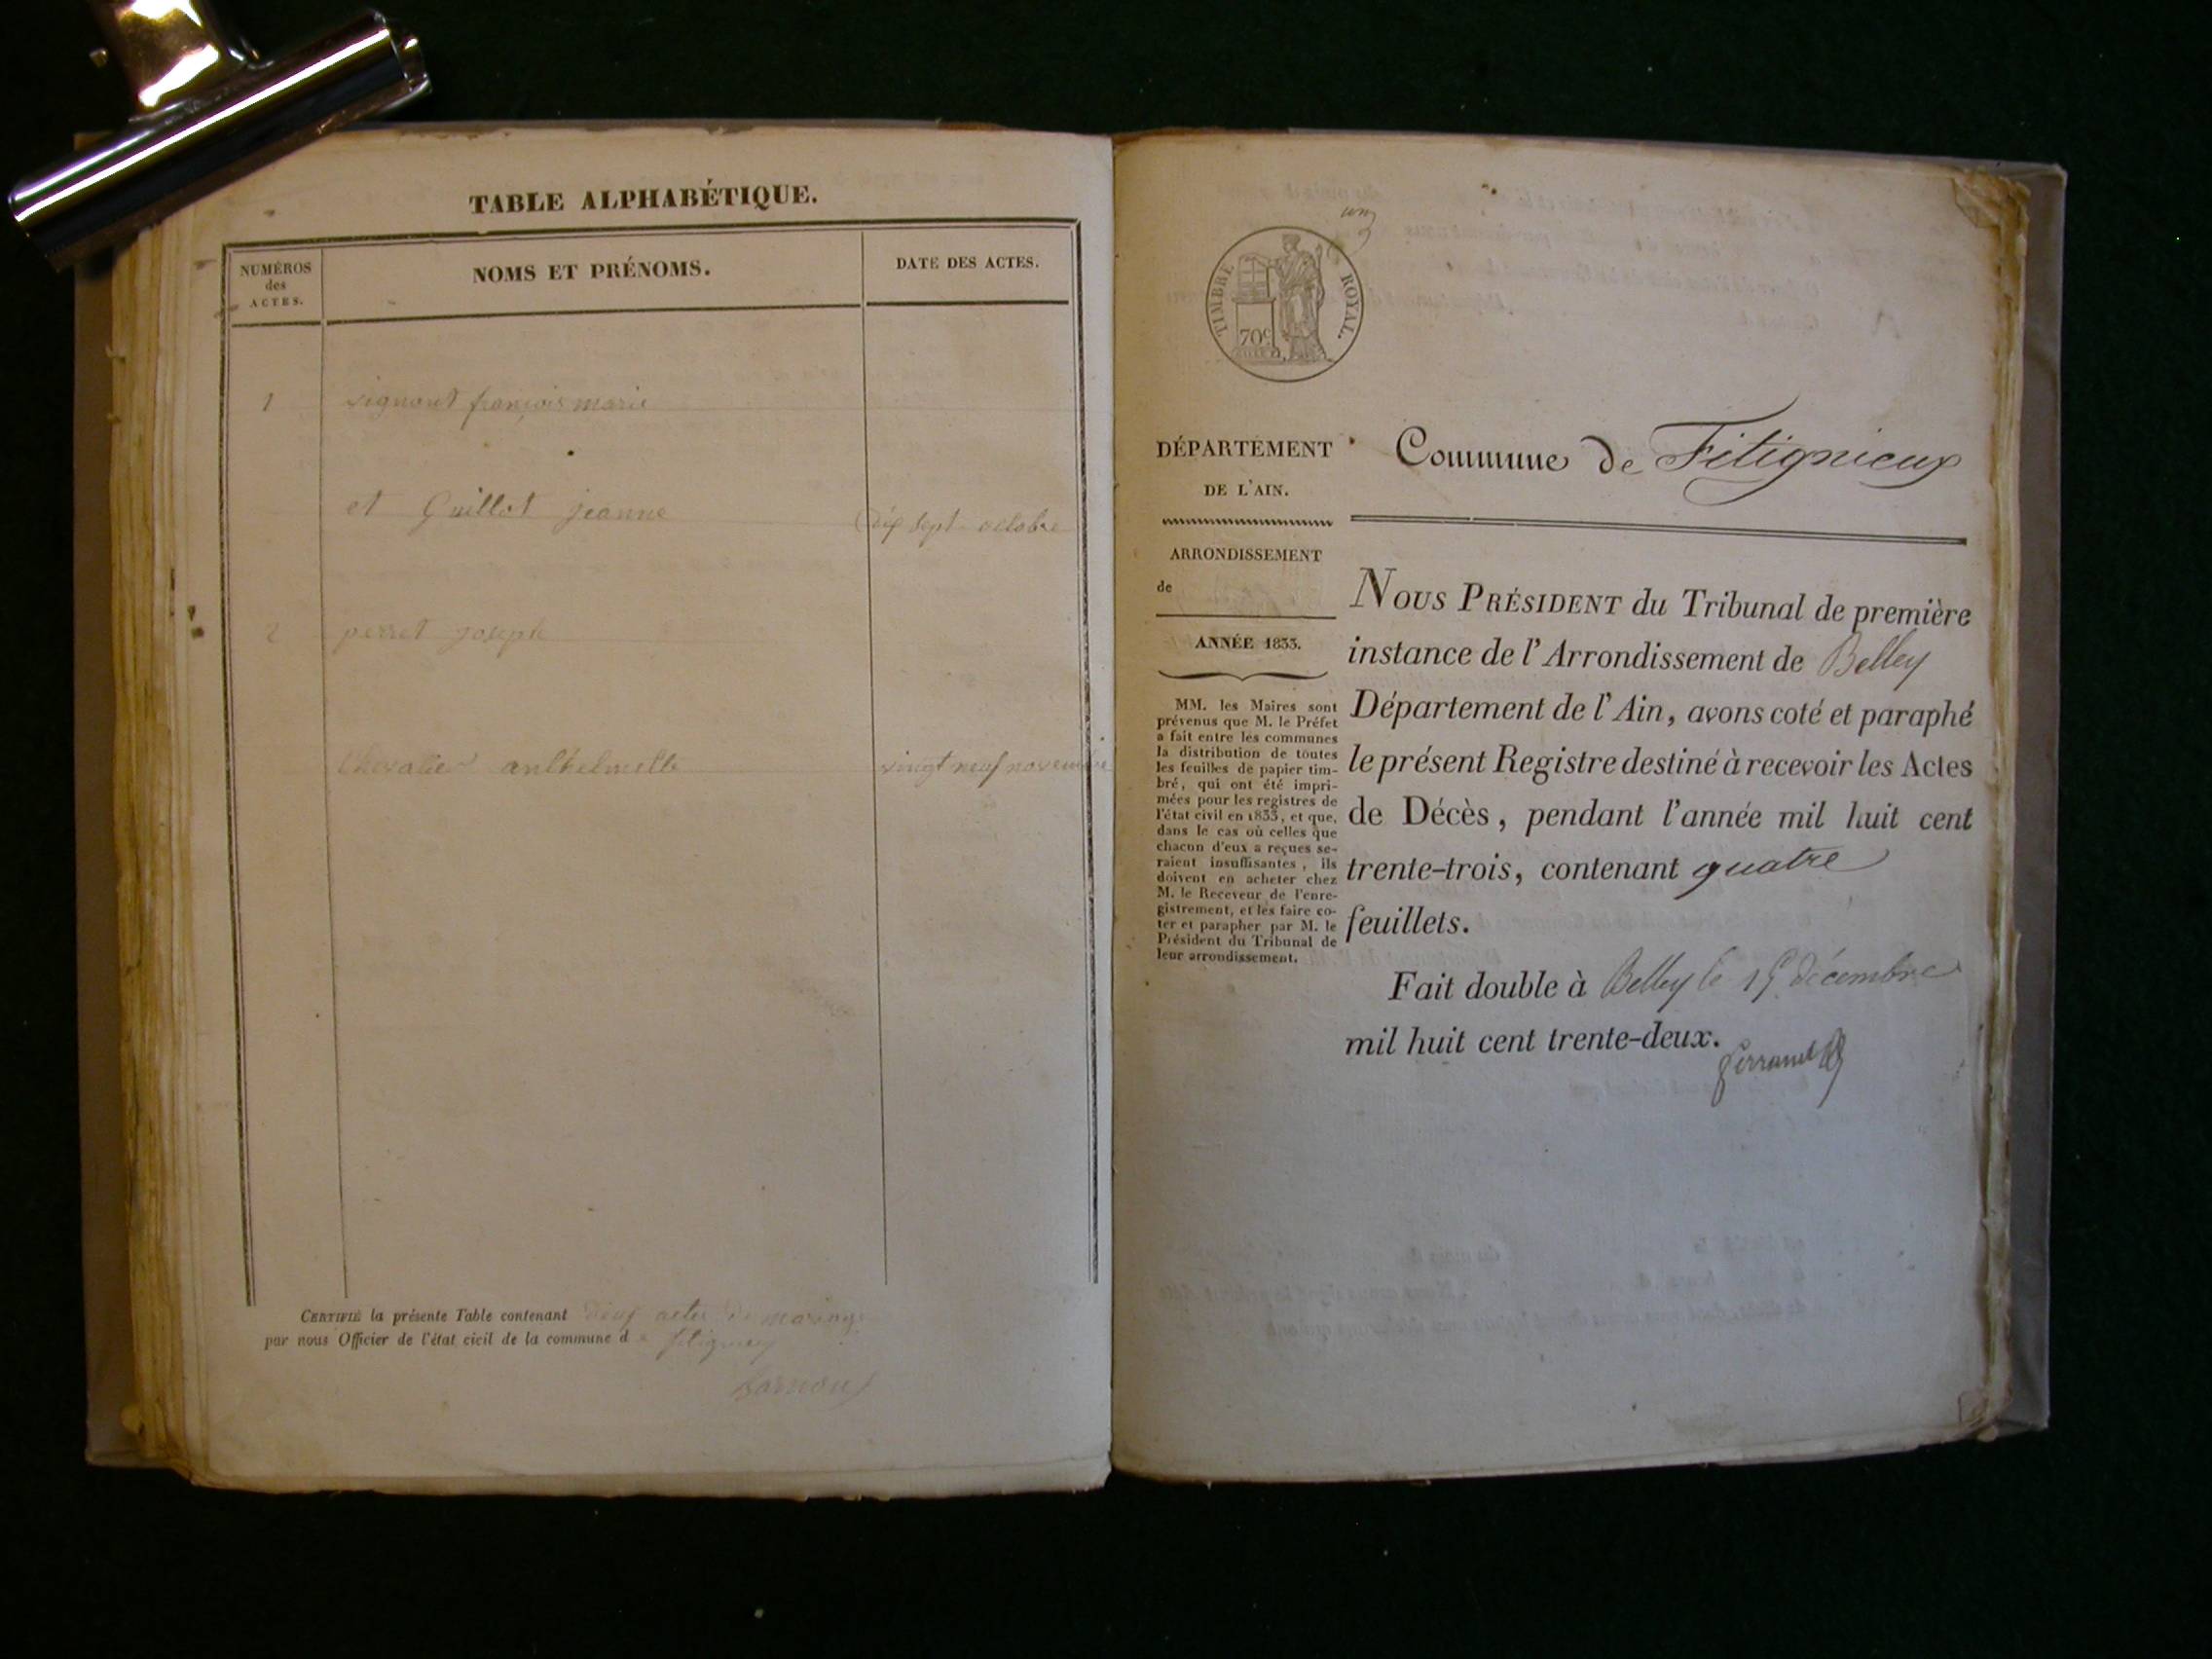 TABLE ALPHABÉTIQUE.
NUMÉROS
des
ACTES.
NOMS ET PRÉNOMS.
DATE DES ACTES.
1 vignout françois marie
et Guillot jeanne dix sept octobre
2 perret joseph
Chevalier anthelmette vingt neuf novembre
CERTIFIÉ la présente Table contenant deux actes de mariage
par nous Officier de l'état civil de la commune d
TIMBRE ROYAL.
70c
DÉPARTEMENT
DE L'AIN.
ARRONDISSEMENT
de
ANNÉE 1833.
MM. les Maires sont
prévenus que M. le Préfet
a fait entre les communes
la distribution de toutes
les feuilles de papier tim-
bré, qui ont été impri-
mées pour les registres de
l'état civil en 1833, et que,
dans le cas où celles que
chacun d'eux a reçues se-
raient insuffisantes, ils
doivent en acheter chez
M. le Receveur de l'enre-
gistrement, et les faire co-
ter et parapher par M. le
Président du Tribunal de
leur arrondissement.
Commune de Fitignieux
NOUS PRÉSIDENT du Tribunal de première
instance de l'Arrondissement de Belley
Département de l'Ain, avons coté et paraphé
le présent Registre destiné à recevoir les Actes
de Décès, pendant l'année mil huit cent
trente-trois, contenant quatre
feuillets.
Fait double à Belley le 15 décembre
mil huit cent trente-deux.